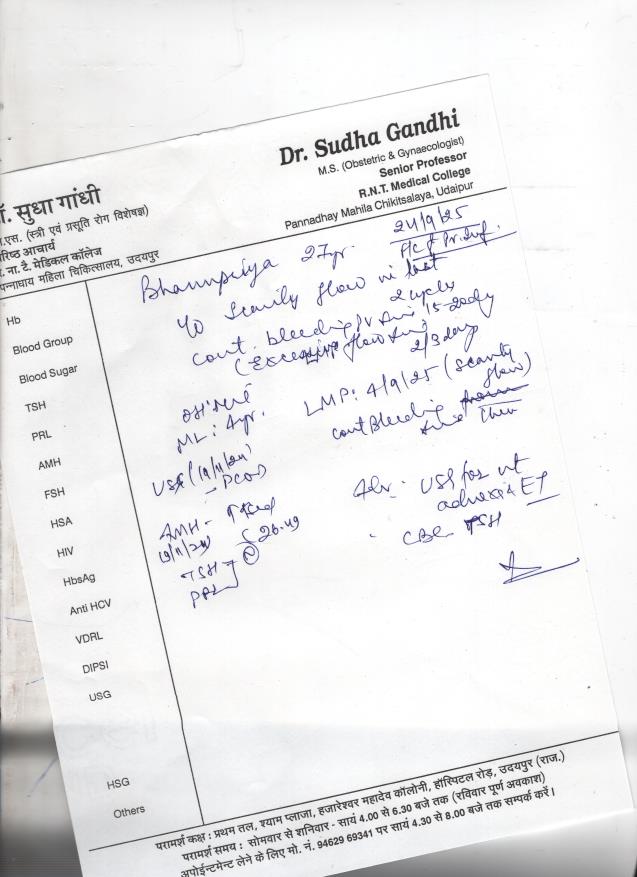 Dr. Sudha Gandhi
M.S. (Obstetric & Gynaecologist)
Senior Professor
R.N.T. Medical College
Pannadhay Mahila Chikitsalaya, Udaipur
ॉ. सुधा गांधी
.एस. (स्त्री एवं प्रसूति रोग विशेषज्ञ)
रिष्ठ आचार्य
. ना.टै. मेडिकल कॉलेज
पन्नाधाय महिला चिकित्सालय, उदयपुर
24/9/25
Bhanupriya 27yr.
Scanty flow in last
2 cycles
cont. bleeding PV since 15-20 day
(Excessive flow since
2/3 days
OH: Nil
ML: 4yr.
LMP: 4/9/25 (scanty
flow)
cont Bleeding
since then
USG (19/11/24)
- PCOD
Adv: USG for ut
adnexa & ET
AMH -
26.49
CBC TSH
TSH
PRL
Hb
Blood Group
Blood Sugar
TSH
PRL
AMH
FSH
HSA
HIV
HbsAg
Anti HCV
VDRL
DIPSI
USG
HSG
Others
परामर्श कक्ष : प्रथम तल, श्याम प्लाजा, हजारेश्वर महादेव कॉलोनी, हॉस्पिटल रोड़, उदयपुर (राज.)
परामर्श समय : सोमवार से शनिवार - सायं 4.00 से 6.30 बजे तक (रविवार पूर्ण अवकाश)
अपोईन्टमेन्ट लेने के लिए मो. नं. 94629 69341 पर सायं 4.30 से 8.00 बजे तक सम्पर्क करें।